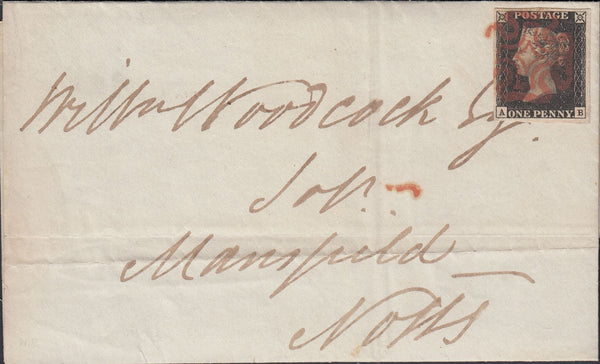 POSTAGE
A ONE PENNY B
Willm Woodcock Esq.
Solr.
Mansfield
Notts